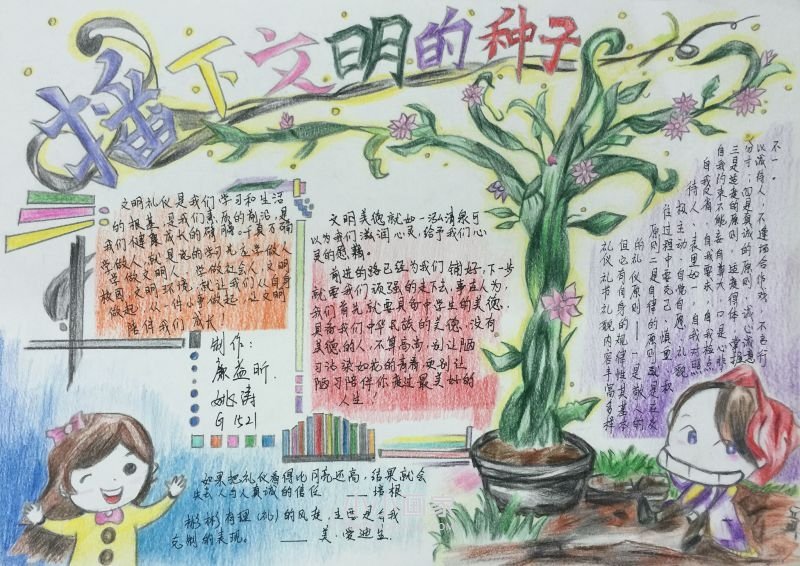 播下文明的种子
文明礼仪是我们学习和生活
的根基,是我们素质的前沿,是
我们健康成长的臂膀。千真万确
学做人,就是说的学习先是学做人
学做文明人,学做社会人,文明
校园,文明环境,就让我们从自身
做起,从一件小事做起,让文明
陪伴我们成长
制作:
康益昕
姚涛
G1521
文明美德就如一泓清泉可
以为我们滋润心灵,给予我们心
灵的慰藉。
前进的路已经为我们铺好,下一步
就要我们顽强的走下去,事在人为,
我们首先就要具备中学生的美德,
具备我们中华民族的美德,没有
美德的人,不算高尚,别让陋
习沾染如花的青春,更别让
陋习陪伴你度过最美好的
人生!
礼仪礼节礼貌内容丰富多样
但它有自身的规律性其基本
的礼仪原则:一是敬人的
原则二是自律的原则就是在交
往过程中要克己、慎重
积极主动、自觉自愿、礼貌
待人、表里如一,自我对照
自我反省,自我要求,自我检点
自我约束不能妄自尊大,口是心非
三是适度的原则,适度得体,掌握
分寸;四是真诚的原则,诚心诚意
以诚待人,不逢场作戏,不言行
不一。
如果把礼仪看得比月亮还高,结果就会
失去人与人真诚的信任 ——培根
彬彬有理(礼)的风度,主要是自我
克制的表现。 ——美·爱迪生